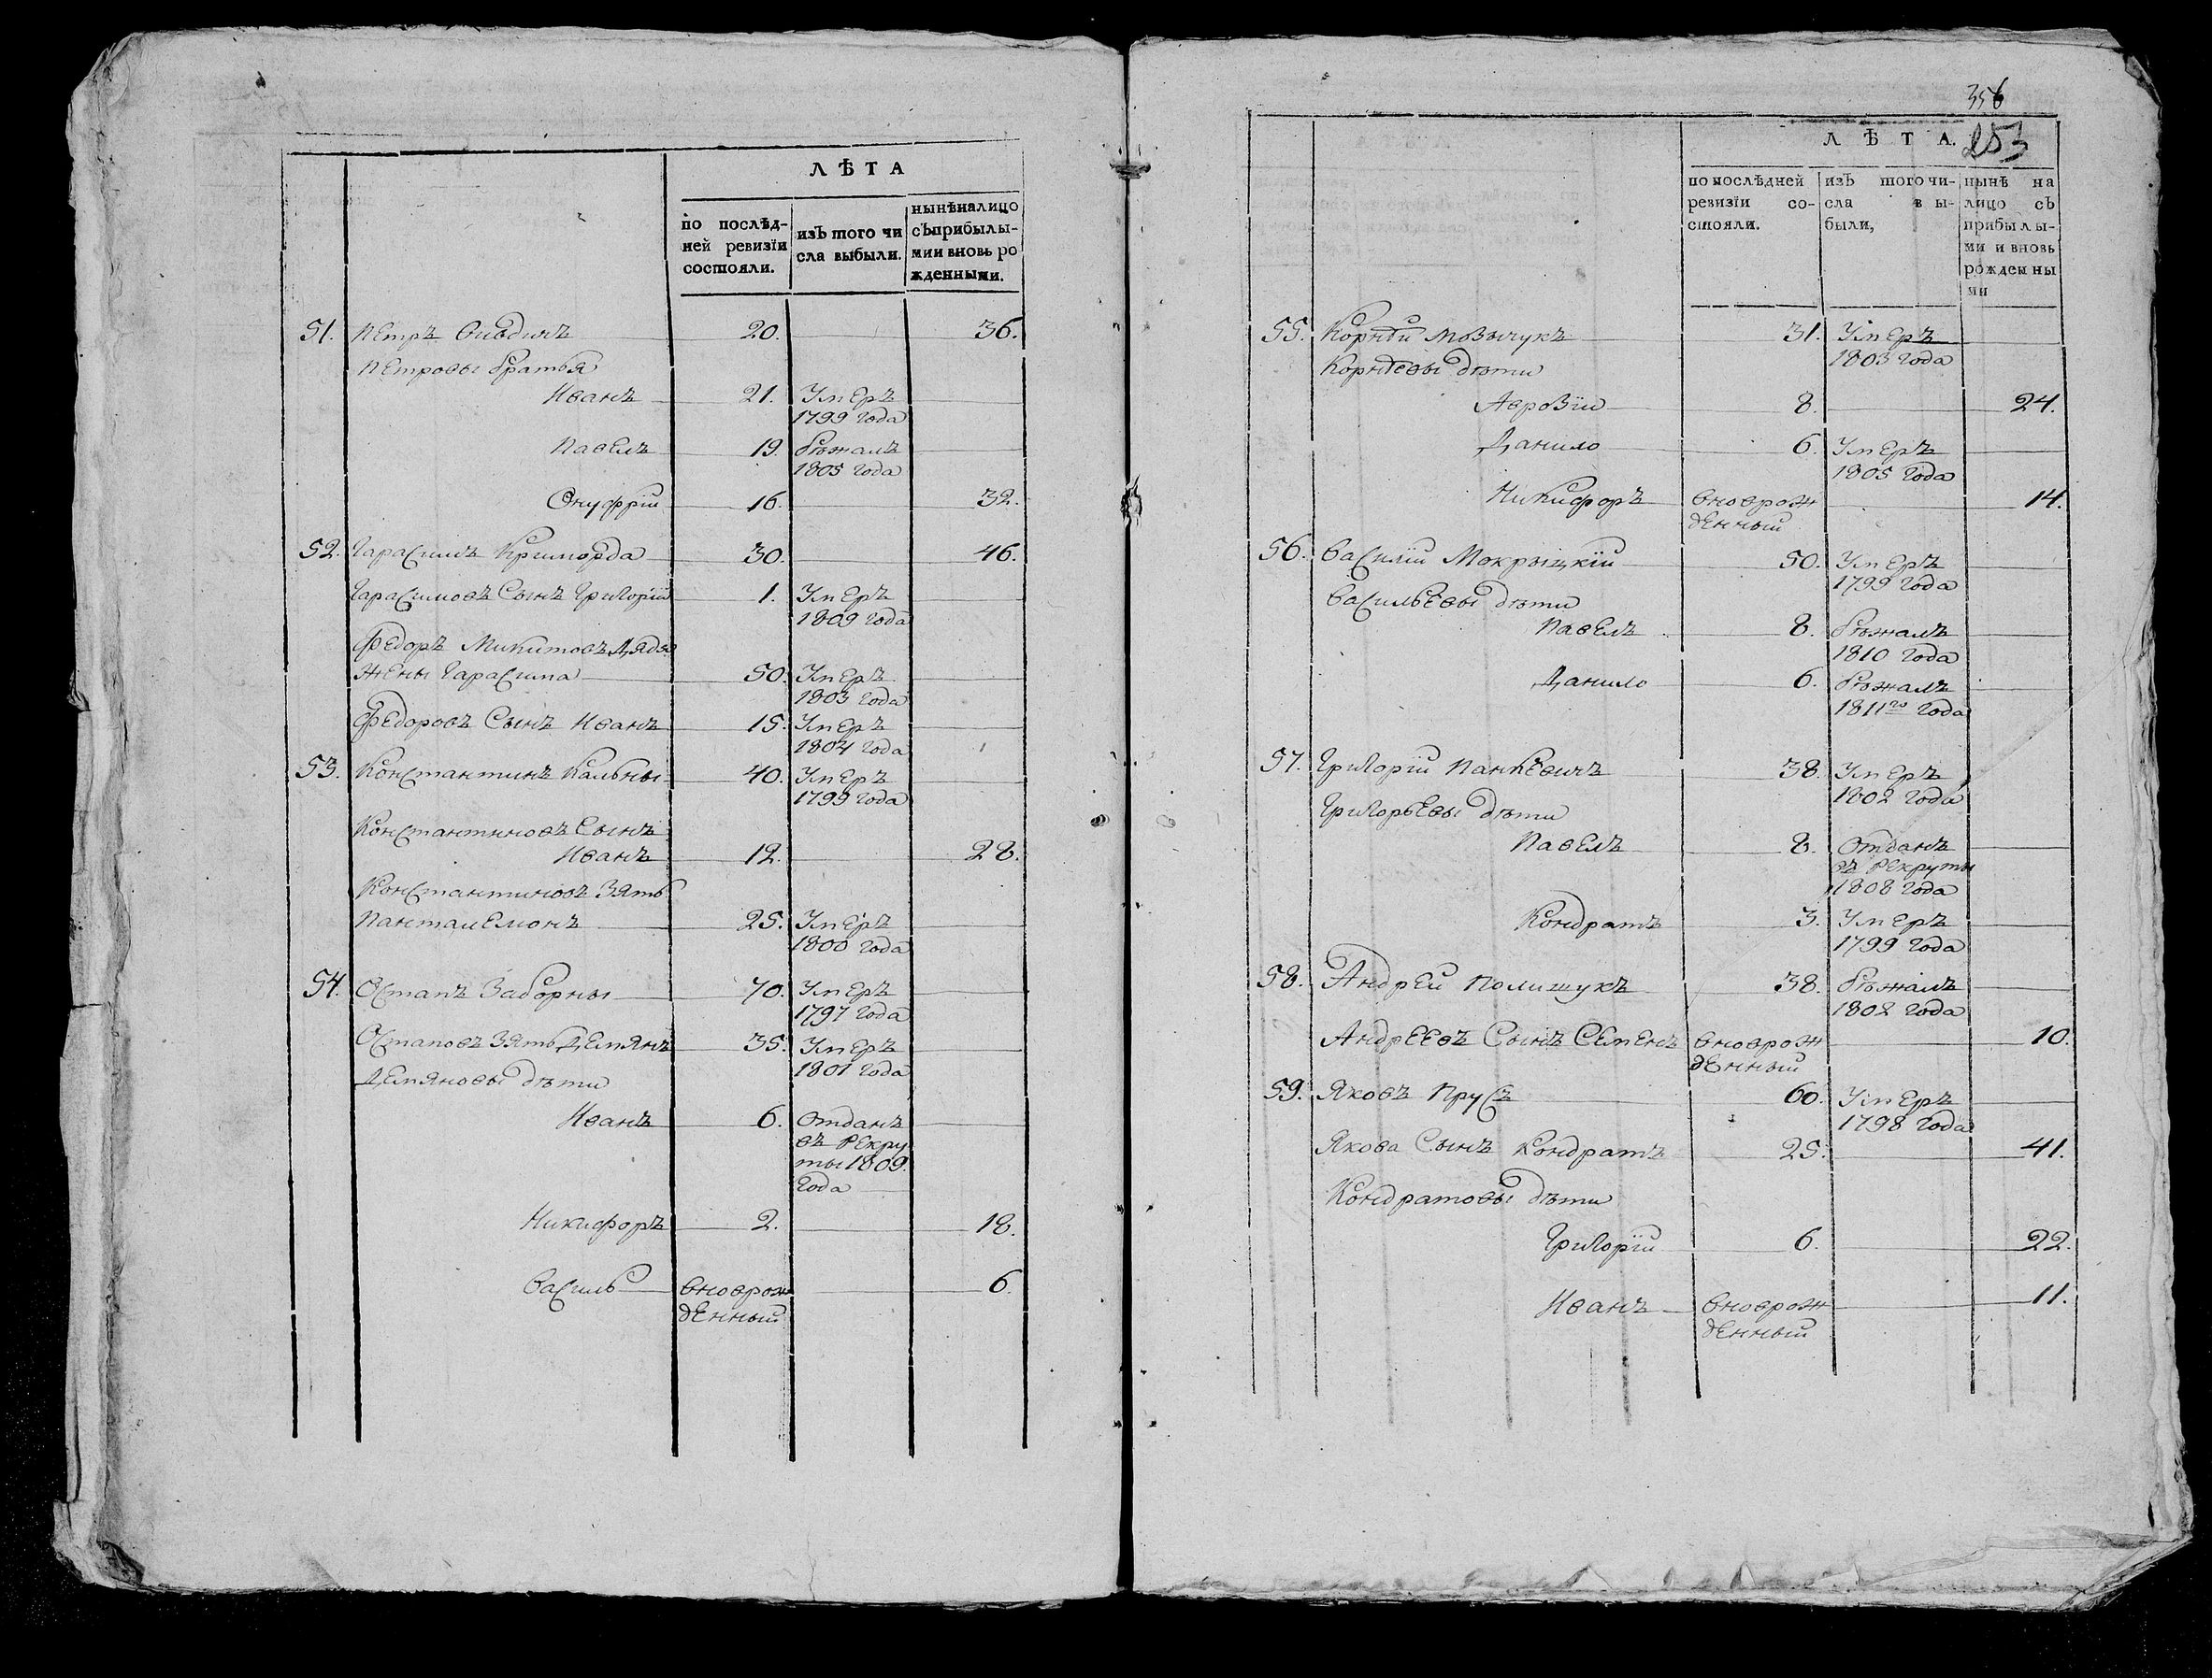 ЛѢТА
по послѣд-
ней ревизїи
состояли.
изЪ того чи
сла выбыли.
нынѣ на лицо
сЪ прибылы-
ми и вновь ро
жденными.
51. Петръ 20. 36.
Петровы братья
Иванъ 21. Умеръ
1799 года
Павелъ 19 бѣжалъ
1805 года
Онуфрїй 16. 32.
52. Гарасимъ Криморда 30. 46.
Гарасимовъ Сынъ Григорїй 1. Умеръ
1809 года
Федоръ Микитовъ Дядя
Жены Гарасима 50. Умеръ
1803 года
Федоровъ Сынъ Иванъ 15. Умеръ
1804 года
53. Константинъ Кальны 40. Умеръ
1799 года
Константиновъ Сынъ
Иванъ 12. 28.
Константиновъ Зять
Панталемонъ 25. Умеръ
1800 года
54. Остапъ Заборны 70. Умеръ
1797 года
Остаповъ Зять Демянъ 35. Умеръ
1801 года
Демяновы дѣти
Иванъ 6. отданъ
въ рекру
ты 1809.
года
Никифоръ 2. 18.
Василь вноврож 6.
денный
356
253
ЛѢТА.
по послѣдней
ревизїи со-
стояли.
изЪ того чи-
сла вы-
были,
нынѣ на
лицо сЪ
прибылы-
ми и вновь
рожденны
ми
55. Корнѣй Мозычукъ 31. Умеръ
1803 года
Корнѣевы дѣти
Аврозїй 8. 24.
Данило 6. Умеръ
1805 года
Никифоръ вноврож 14.
денный
56. Василїй Мокрыцкїй 50. Умеръ
1799 года
Васильевы дѣти
Павелъ 8. бѣжалъ
1810 года
Данило 6. бѣжалъ
1811го года
57. Григорїй Панкевичъ 38. Умеръ
1802 года
Григорьевы дѣти
Павелъ 8. отданъ
въ рекруты
1808 года
Кондратъ 3. Умеръ
1799 года
58. Андрей Полищукъ 38. бѣжалъ
1802 года
Андреевъ Сынъ Семенъ вноврож 10.
денный
59. Яковъ Прусъ 60. Умеръ
1798 года
Якова Сынъ Кондратъ 25. 41.
Кондратовы дѣти
Григорїй 6. 22.
Иванъ вноврож 11.
денный